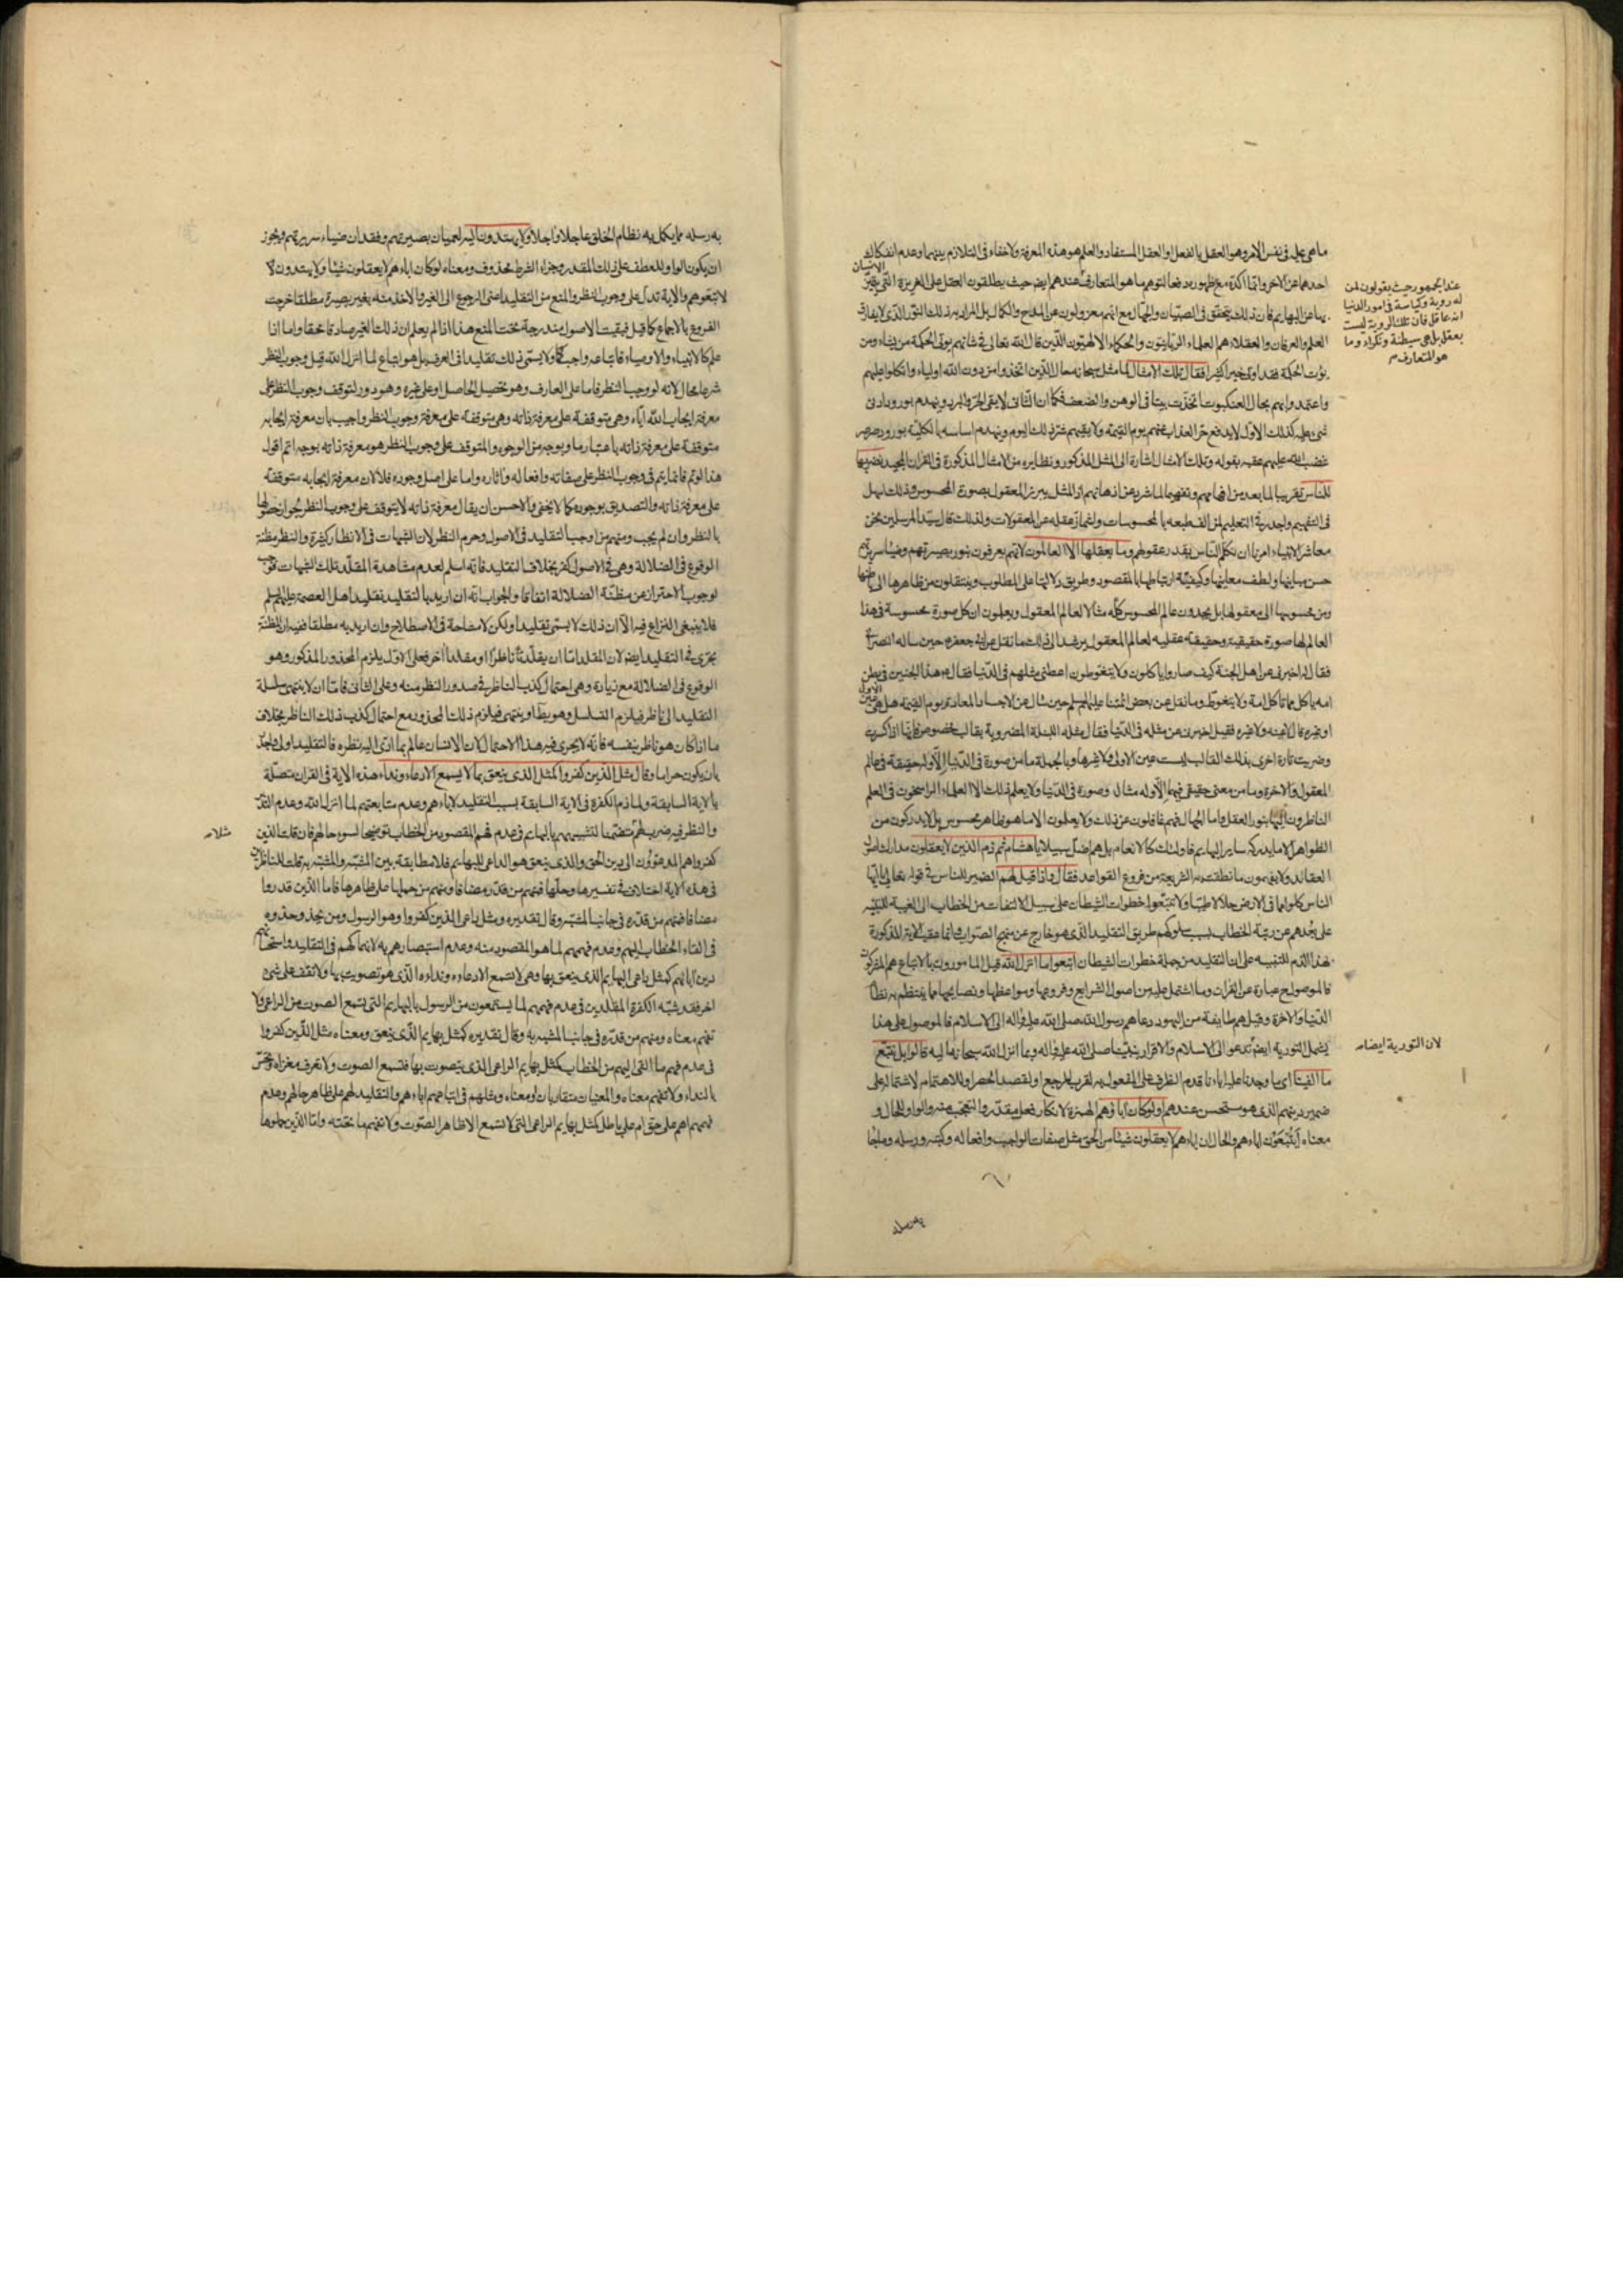 ما هي عليه في نفس الامر وهو العقل بالفعل او العقل المستفاد والعلم هو هذه المعرفة ولا خفاء في التلازم بينهما وعدم انفكاك
احدهما عن الاخر وانما اكده مع ظهوره دفعا لتوهم ما هو المتعارف عندهم ايضا حيث يطلقون العقل على الغريزة التي يتميز الانسان
بها عن البهايم فان ذلك يتحقق في الصبيان والجهال مع انهم معزولون عن المدح والكمال بل المراد به ذلك النور الذي لا يفارق
العلم والعرفان والعقلاء هم العلماء الربانيون والحكماء الالهيون الذين قال الله تعالى في شانهم يؤتى الحكمة من يشاء ومن
يؤت الحكمة فقد اوتي خيرا كثيرا فقال وتلك الامثال لما مثل سبحانه حال الذين اتخذوا من دون الله اولياء واتكلوا عليهم
واعتمدوا بهم بحال العنكبوت اتخذت بيتا في الوهن والضعف فكما ان الثاني لا يقي الحر والبرد وينهدم بورود ادنى
شيء عليه كذلك الاول لا يدفع حر العذاب عنهم يوم القيمة ولا يقيهم ضر ذلك اليوم وينهدم اساسه بالكلية بورود صرصر
غضب الله عليهم عقبه بقوله وتلك الامثال اشارة الى المثل المذكور ونظايره من الامثال المذكورة في القران المجيد نضربها
للناس تقريبا لما بعد من افهامهم وتفهيما لما شرد عن اذهانهم اذ المثل يبرز المعقول بصورة المحسوس وذلك اسهل
في التفهيم واجدر في التعليم لمن الف طبعه بالمحسوسات واشمأز عقله عن المعقولات ولذلك قال سيد المرسلين نحن
معاشر الانبياء امرنا ان نكلم الناس بقدر عقولهم وما يعقلها الا العالمون لانهم يعرفون بنور بصيرتهم وضياء سريرتهم
حسن مبانيها ولطف معانيها وكيفية ارتباطها بالمقصود وطريق دلالتها على المطلوب وينتقلون من ظاهرها الى باطنها
ومن محسوسها الى معقولها بل يجدون عالم المحسوس كله مثالا لعالم المعقول ويعلمون ان كل صورة محسوسة في هذا
العالم لها صورة حقيقية وحقيقة عقلية لعالم المعقول يرشد الى ذلك ما نقل عن ابي جعفر ع حين ساله النصراني
فقال له اخبرني عن اهل الجنة كيف صاروا ياكلون ولا يتغوطون اعطني مثلهم في الدنيا فقال ع هذا الجنين في بطن
امه ياكل مما تاكل امه ولا يتغوط وما نقل عن بعض ائمتنا عليهم السلم حين سئل عن الاجساد المعادة يوم القيمة هل هي عين الاول
او غيره قال لا عينه ولا غيره فقيل اخبرني عن مثله في الدنيا فقال مثله اللبنة المضروبة بقالب مخصوص فانها اذا كسرت
وضربت تارة اخرى بذلك القالب ليست عين الاولى ولا غيرها وبالجملة ما من صورة في الدنيا الا وله حقيقة في عالم
المعقول والاخرة وما من معنى حقيقي فيهما الا وله مثال وصورة في الدنيا ولا يعلم ذلك الا العلماء الراسخون في العلم
الناظرون اليها بنور العقل واما الجهال فهم غافلون عن ذلك ولا يعلمون الا ما هو ظاهر محسوس بل لا يدركون من
الظواهر الا ما يدركه ساير البهايم فاولئك كالانعام بل هم اضل سبيلا يا هشام ثم ذم الذين لا يعقلون مدارك اصول
العقائد ولا يفهمون ما نطقت به الشريعة من فروع القواعد فقال واذا قيل لهم الضمير للناس في قوله تعالى يا ايها
الناس كلوا مما في الارض حلالا طيبا ولا تتبعوا خطوات الشيطان على سبيل الالتفات من الخطاب الى الغيبة للتنبيه
على بعدهم عن رتبة الخطاب بسبب سلوكهم طريق التقليد الذي هو خارج عن منهج الصواب وانما عقب الاية المذكورة
بهذا الذم للتنبيه على ان التقليد من جملة خطوات الشيطان اتبعوا ما انزل الله قيل المامورون بالاتباع هم المشركون
فالموصول ح عبارة عن القران وما اشتمل عليه من اصول الشرايع وفروعها ومواعظها ونصايحها مما ينتظم به نظام
الدنيا والاخرة وقيل هم طايفة من اليهود دعاهم رسول الله صلى الله عليه واله الى الاسلام فالموصول على هذا
يشمل التورية ايضا تدعو الى الاسلام والاقرار بنبينا صلى الله عليه واله وبما انزل الله سبحانه اليه قالوا بل نتبع
ما الفينا اي ما وجدنا عليه اباءنا قدم الظرف على المفعول به لقرب المرجع او لقصد الحصر او للاهتمام لاشتماله على
ضمير دينهم الذي هو مستحسن عندهم او لو كان اباؤهم الهمزة لانكار فعل مقدر والتعجب منه والواو للحال و
معناه ايتبعون اباءهم والحال ان اباءهم لا يعقلون شيئا من الحق مثل صفات الواجب وافعاله وكتبه ورسله وما جاء
به رسله
عند الجمهور حيث يقولون لمن
له روية وكياسة في امور الدنيا
انه عاقل فان تلك الروية ليست
بعقل بل هي شيطنة ونكراء وما
هو المتعارف
لان التورية ايضا
به رسله مما يكمل به نظام الخلق عاجلا واجلا ولا يهتدون اليه لعميان بصيرتهم وفقدان ضياء سريرتهم ويجوز
ان يكون الواو للعطف على ذلك المقدر وجزاء الشرط محذوف ومعناه لو كان اباءهم لا يعقلون شيئا ولا يهتدون
لاتبعوهم والاية تدل على وجوب النظر والمنع من التقليد اعني الرجوع الى الغير والاخذ منه بغير بصيرة مطلقا خرجت
الفروع بالاجماع كما قيل فبقيت الاصول مندرجة تحت المنع هذا اذا لم يعلم ان ذلك الغير صادق محقا واما اذا
علم كالانبياء والاوصياء فاتباعه واجب ولا يسمى ذلك تقليدا في العرف بل هو اتباع لما انزل الله قيل وجوب النظر
شرعا محال لانه لو وجب النظر فاما على العارف وهو تحصيل الحاصل او على غيره وهو دور لتوقف وجوب النظر على
معرفة ايجاب الله اياه وهي متوقفة على معرفة ذاته وهي متوقفة على معرفة وجوب النظر واجيب بان معرفة ايجابه
متوقفة على معرفة ذاته باعتبار ما وبوجه من الوجوه والمتوقف على وجوب النظر هو معرفة ذاته بوجه اتم اقول
هذا لو تم فانما يتم في وجوب النظر على صفاته وافعاله واثاره واما على اصل وجوده فلا لان معرفة ايجابه متوقفة
على معرفة ذاته والتصديق بوجوده كما لا يخفى والاحسن ان يقال معرفة ذاته لا يتوقف على وجوب النظر لجواز حصولها
بالنظر وان لم يجب ومنهم من اوجب التقليد في الاصول وحرم النظر لان الشبهات في الانظار كثيرة والنظر مظنة
الوقوع في الضلالة وهي في الاصول كفر بخلاف التقليد فانه اسلم لعدم مشاهدة المقلد تلك الشبهات فوجب
لوجوب الاحتراز عن مظنة الضلالة اتفاقا والجواب انه ان اريد بالتقليد تقليد اهل العصمة عليهم السلم
فلا ينبغي النزاع فيه الا ان ذلك لا يسمى تقليدا ولكن لا مشاحة في الاصطلاح وان اريد به مطلقا ففيه ان المظنة
يجري في التقليد ايضا لان المقلد اما ان يقلد ناظرا او مقلدا اخر فعلى الاول يلزم المحذور المذكور وهو
الوقوع في الضلالة مع زيادة وهي احتمال كذب الناظر في صدور النظر منه وعلى الثاني فاما ان لا ينتهي سلسلة
التقليد الى ناظر فيلزم التسلسل وهو بط او ينتهي فيلزم ذلك المحذور مع احتمال كذب ذلك الناظر بخلاف
ما اذا كان هو ناظر بنفسه فانه لا يجري فيه هذا الاحتمال لان الانسان عالم بما ادى اليه نظره فالتقليد اولى واجدر
بان يكون حراما وقال مثل الذين كفروا كمثل الذي ينعق بما لا يسمع الا دعاء ونداء هذه الاية في القران متصلة
بالاية السابقة ولما ذم الكفرة في الاية السابقة بسبب التقليد لاباءهم وعدم متابعتهم لما انزل الله وعدم التدبر
والنظر فيه ضرب لهم متضمنا لتشبيههم بالبهايم في عدم فهم المقصود من الخطاب توضيحا لسوء حالهم فان قلت الذين
كفروا هم المدعوون الى دين الحق والذي ينعق هو الداعي للبهايم فلا مطابقة بين المشبه والمشبه به قلت للناظرين
في هذه الاية اختلاف في تفسيرها وحلها فمنهم من قدر مضافا ومنهم من حملها على ظاهرها فاما الذين قدروا
مضافا فمنهم من قدره في جانب المشبه وقال تقديره ومثل داعي الذين كفروا وهو الرسول ومن يحذو حذوه
في القاء الخطاب اليهم وعدم فهمهم لما هو المقصود منه وعدم استبصارهم به لانهماكهم في التقليد واستحبابهم
دين ابائهم كمثل داعي البهايم الذي ينعق بها وهي لا تسمع الا دعاءه ونداءه الذي هو تصويت بها ولا تقف على شيء
اخر فقد شبه الكفرة المقلدين في عدم فهمهم لما يستمعون من الرسول بالبهايم التي تسمع الصوت من الراعي ولا
تفهم معناه ومنهم من قدره في جانب المشبه به وقال تقديره كمثل بهايم الذي ينعق ومعناه مثل الذين كفروا
في عدم فهم ما القي اليهم من الخطاب كمثل بهايم الراعي الذي يتصوت بها فتسمع الصوت ولا تعرف مغزاه وتحس
بالنداء ولا تفهم معناه والمعنيان متقاربان او معناه ومثلهم في اتباعهم اباءهم والتقليد لهم على ظاهر حالهم وعدم
فهمهم اهم على حق ام على باطل كمثل بهايم الراعي التي لا تسمع الا ظاهر الصوت ولا تفهم ما تحته واما الذين حملوها
مثلا